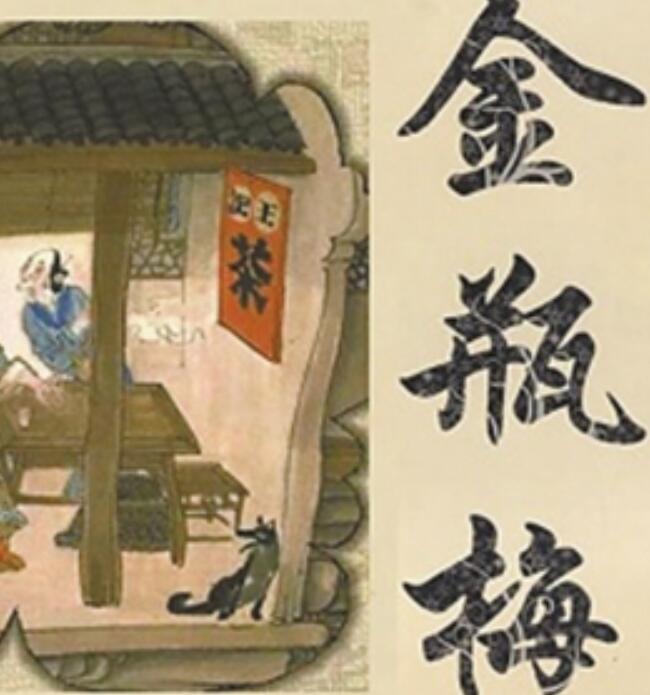 金瓶梅
王
茶